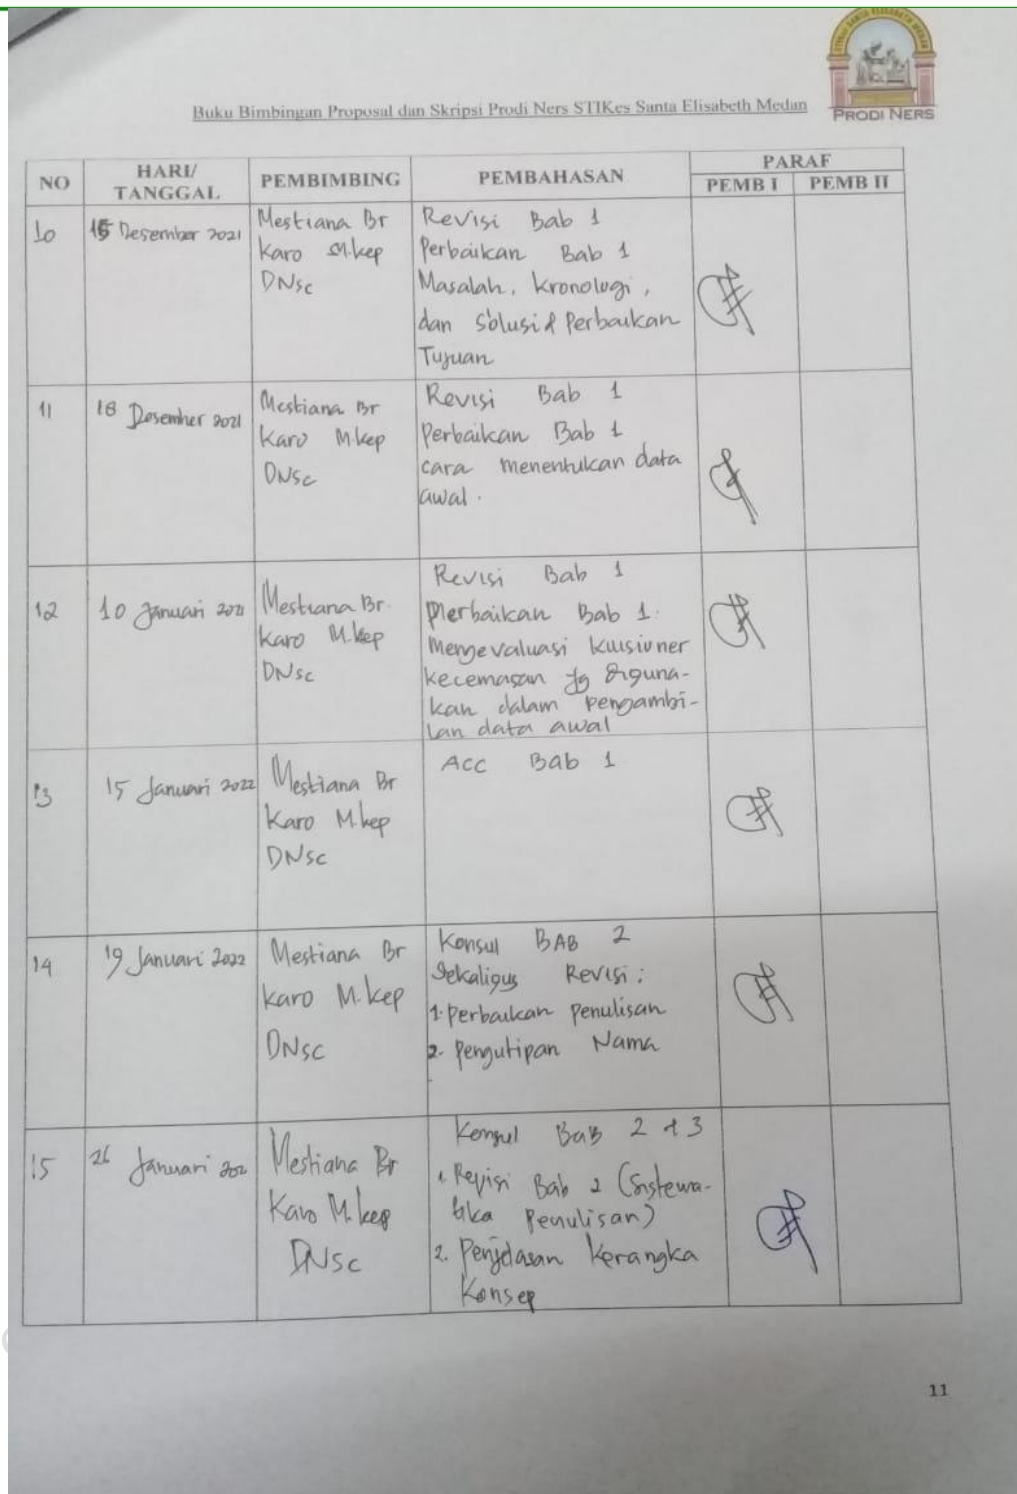 Buku Bimbingan Proposal dan Skripsi Prodi Ners STIKes Santa Elisabeth Medan
PRODI NERS
NO
HARI/
TANGGAL
PEMBIMBING
PEMBAHASAN
PARAF
PEMB I
PEMB II
10
15 Desember 2021
Mestiana Br
Karo M.kep
DNsc
Revisi Bab 1
Perbaikan Bab 1
Masalah, kronologi,
dan Solusi & Perbaikan
Tujuan
11
18 Desember 2021
Mestiana Br
Karo M.kep
DNSc
Revisi Bab 1
Perbaikan Bab 1
cara menentukan data
awal.
12
10 Januari
Mestiana Br.
Karo M.kep
DNsc
Revisi Bab 1
Perbaikan Bab 1.
Mengevaluasi kuisioner
kecemasan yg diguna-
kan dalam pengambi-
lan data awal
13
15 Januari 2022
Mestiana Br
Karo M.kep
DNsc
Acc Bab 1
14
19 Januari 2022
Mestiana Br
Karo M.kep
DNsc
Konsul BAB 2
Sekaligus Revisi:
1. Perbaikan penulisan
2. Pengutipan Nama
15
26 Januari
Mestiana Br
Karo M.kep
DNSc
Konsul Bab 2 & 3
1. Revisi Bab 2 (Sistema-
tika Penulisan)
2. Penjelasan Kerangka
Konsep
11